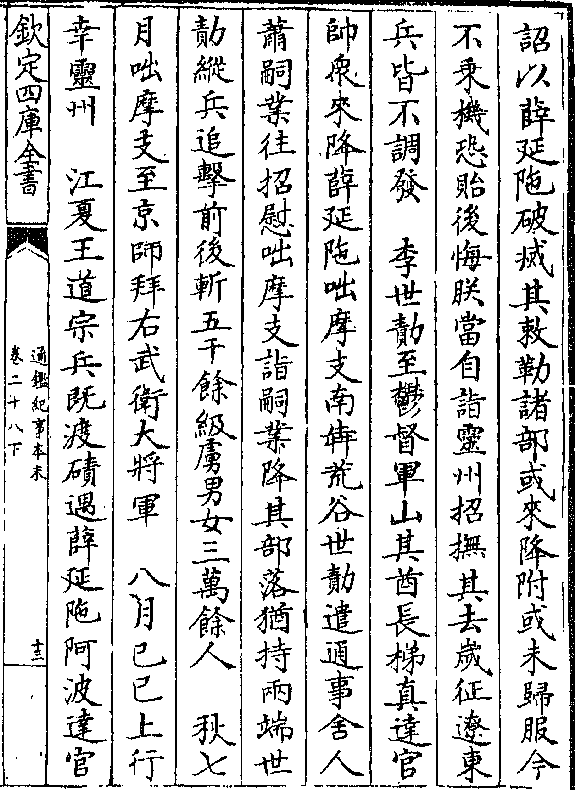 詔以薛延陁破㓕其敕勒諸部或來降附或未歸服今
不乗機恐貽後悔朕當自詣靈州招撫其去歲征遼東
兵皆不調發　李世勣至鬱督軍山其酋長梯真達官
帥衆來降薛延陁咄摩支南奔荒谷世勣遣通事舍人
蕭嗣業往招慰咄摩支詣嗣業降其部落猶持兩端世
勣縱兵追擊前後斬五千餘級虜男女三萬餘人　秋七
月咄摩支至京師拜右武衛大將軍　八月己巳上行
幸靈州　江夏王道宗兵既渡磧遇薛延陁阿波達官
欽定四庫全書
通鑑紀事本末
卷二十八下
十三